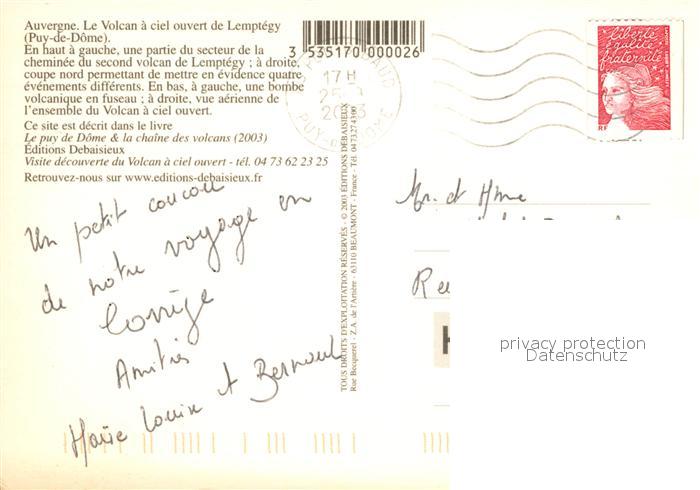 Auvergne. Le Volcan à ciel ouvert de Lemptégy
(Puy-de-Dôme).
En haut à gauche, une partie du secteur de la
cheminée du second volcan de Lemptégy ; à droite,
coupe nord permettant de mettre en évidence quatre
événements différents. En bas, à gauche, une bombe
volcanique en fuseau ; à droite, vue aérienne de
l'ensemble du Volcan à ciel ouvert.
Ce site est décrit dans le livre
Le puy de Dôme & la chaîne des volcans (2003)
Éditions Debaisieux
Visite découverte du Volcan à ciel ouvert - tél. 04 73 62 23 25
Retrouvez-nous sur www.editions-debaisieux.fr
3 535170 000026
17 H
PUY-DE-DOME
liberté
égalité
fraternité
RF
Un petit coucou
de notre voyage en
Corrèze
Amitiés
Marie Louise et Bernard
TOUS DROITS D'EXPLOITATION RÉSERVÉS - © 2003 ÉDITIONS DEBAISIEUX
Rue Becquerel - Z.A. de l'Artière - 63110 BEAUMONT - France - Tél. 0473274300
Mr. et Mme
privacy protection
Datenschutz